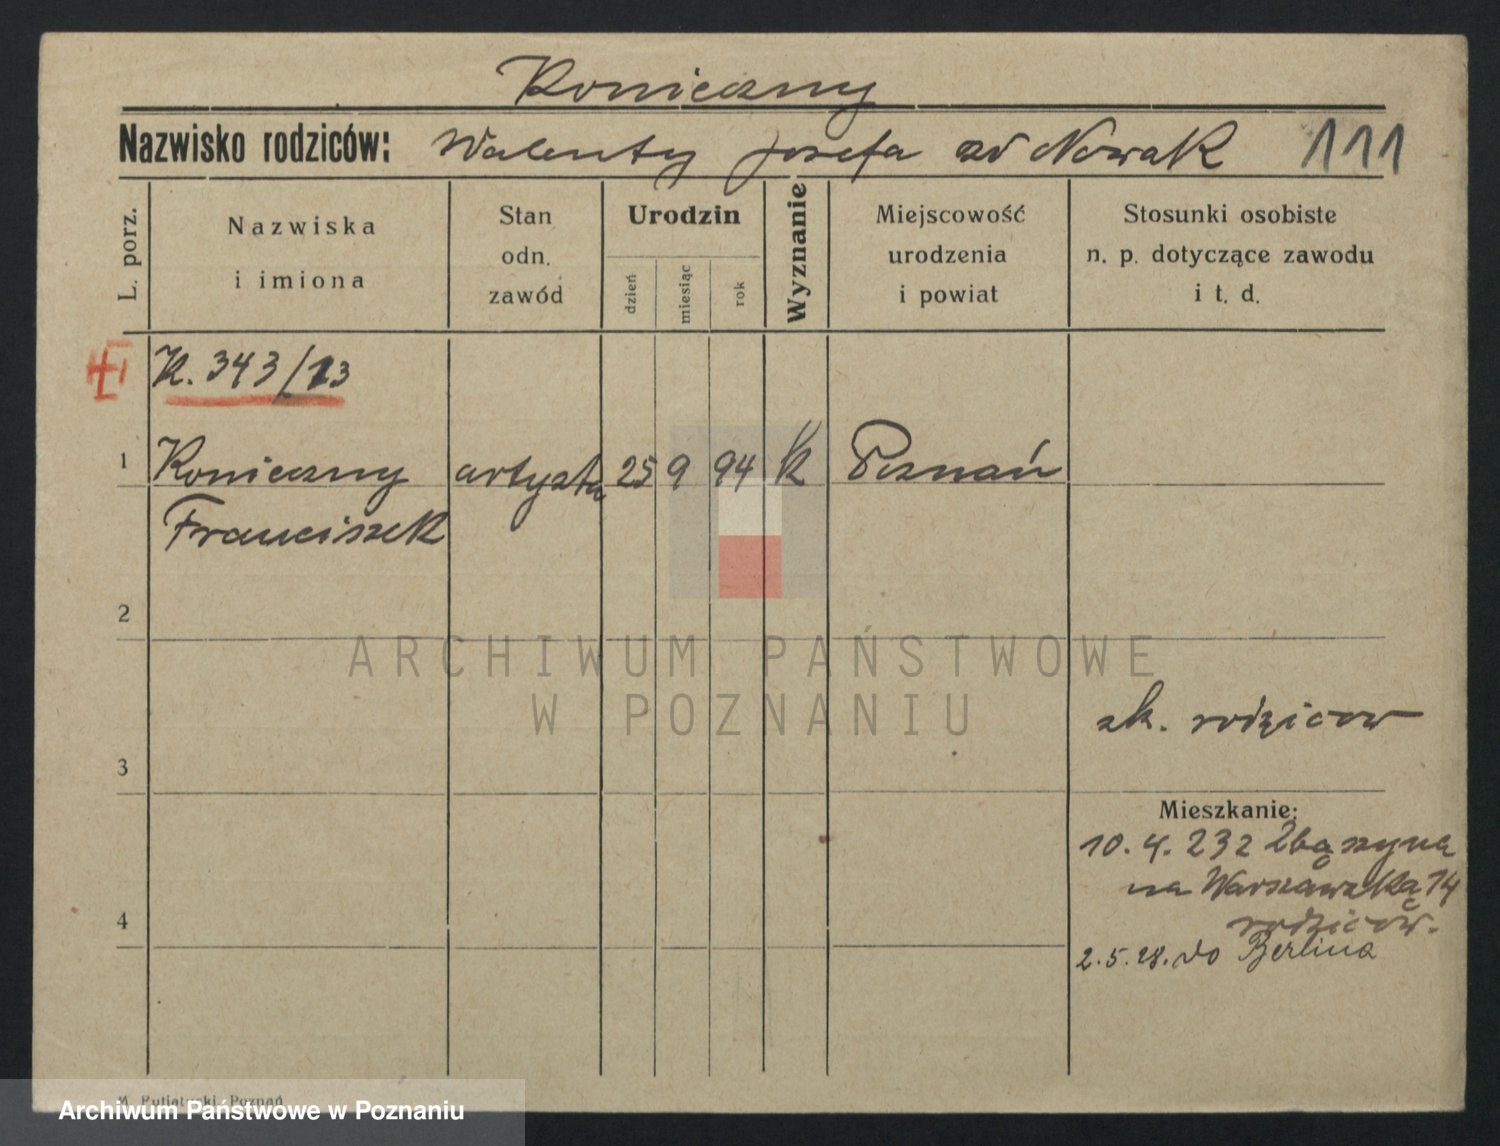 Konieczny
Nazwisko rodziców: Walenty Josefa zd Nowak 111
L. porz.
Nazwiska
i imiona
Stan
odn.
zawód
Urodzin
dzień
miesiąc
rok
Wyznanie
Miejscowość
urodzenia
i powiat
Stosunki osobiste
n. p. dotyczące zawodu
i t. d.
K. 343/13
1 Konieczny artysta 25 9 94 k Poznań
Franciszek
2
ARCHIWUM PAŃSTWOWE
W POZNANIU
zk. rodziców
3
Mieszkanie:
10. 4. 232 Zbąszynia
na Warszawska 14
4
rodziców.
2.5.28. do Berlina
Archiwum Państwowe w Poznaniu